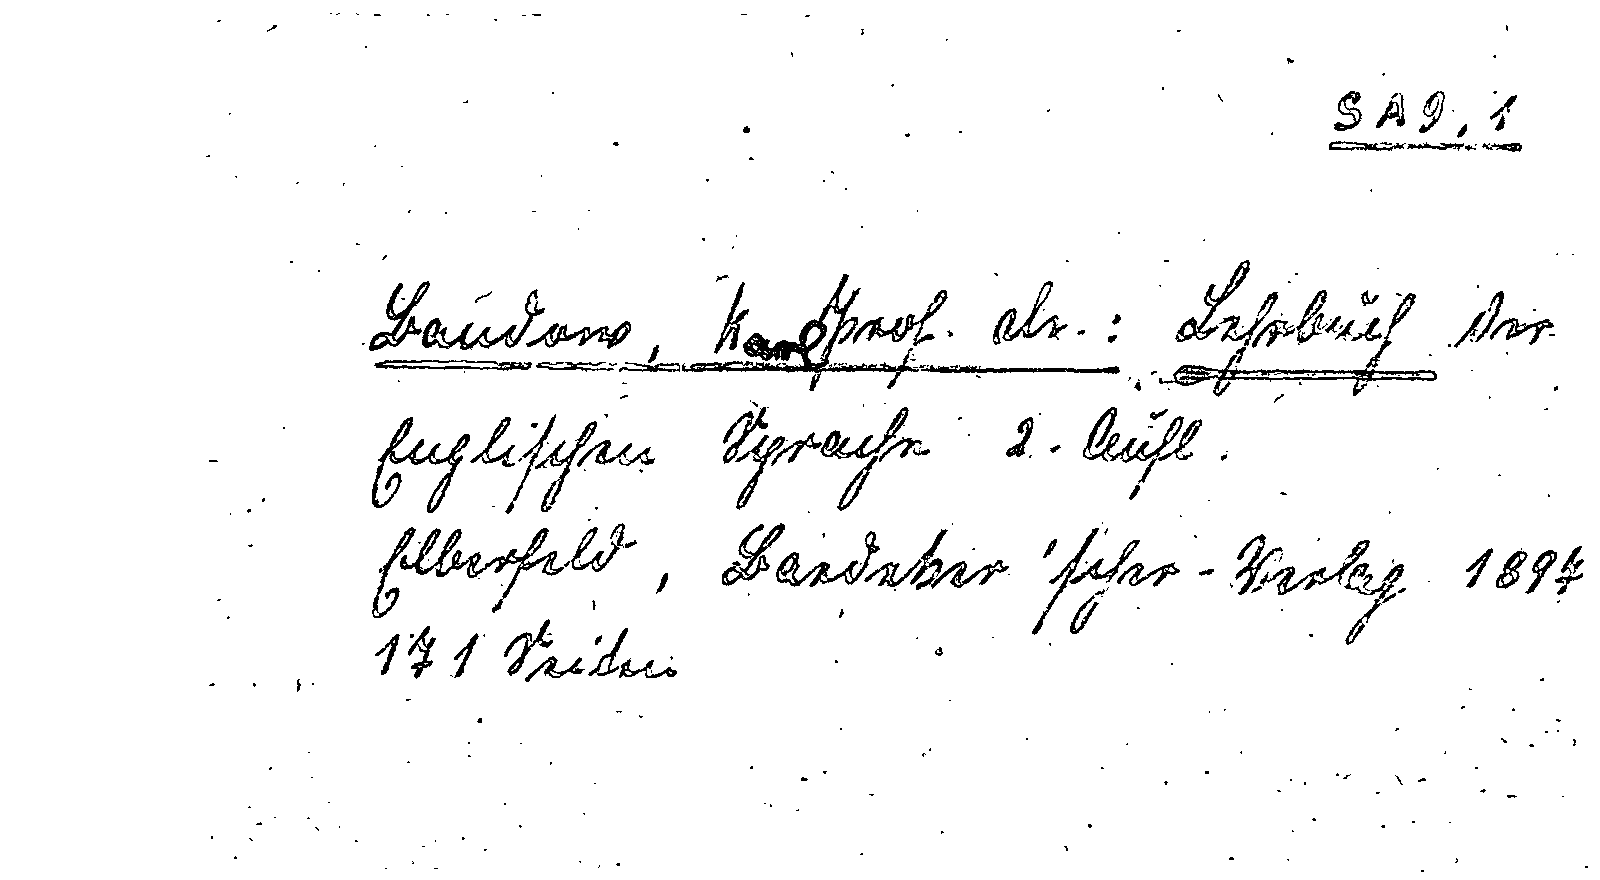 SA9.1
Baudow, Karl Prof. Dr.: Lehrbuch der
Englischen Sprache 2. Aufl.
Elberfeld, Baedeker'scher-Verlag 1897
171 Seiten